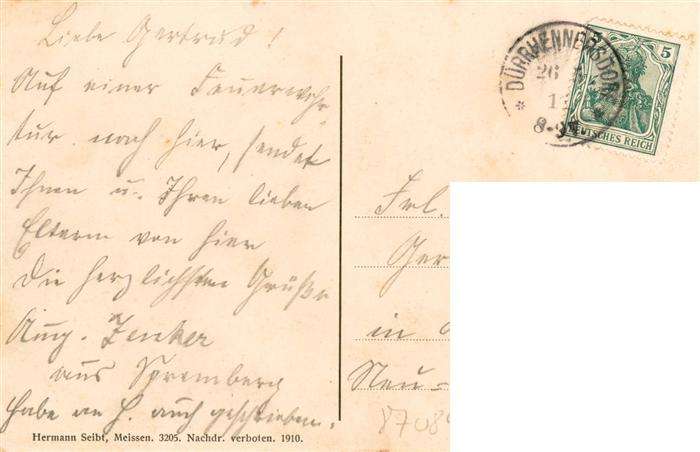 Liebe Gertrud!
Auf einer Feuerwehr
tur. nach hier, sendet
Ihnen u. Ihren lieben
Eltern von hier
die herzlichsten Grüße
Aug. Zenker
aus Spremberg
habe an H. auch geschrieben.
Hermann Seibt, Meissen. 3205. Nachdr. verboten. 1910.
DÜRRHENNERSDORF
26
1
8-9
5
DEUTSCHES REICH
Frl.
Ger
in
Neu=